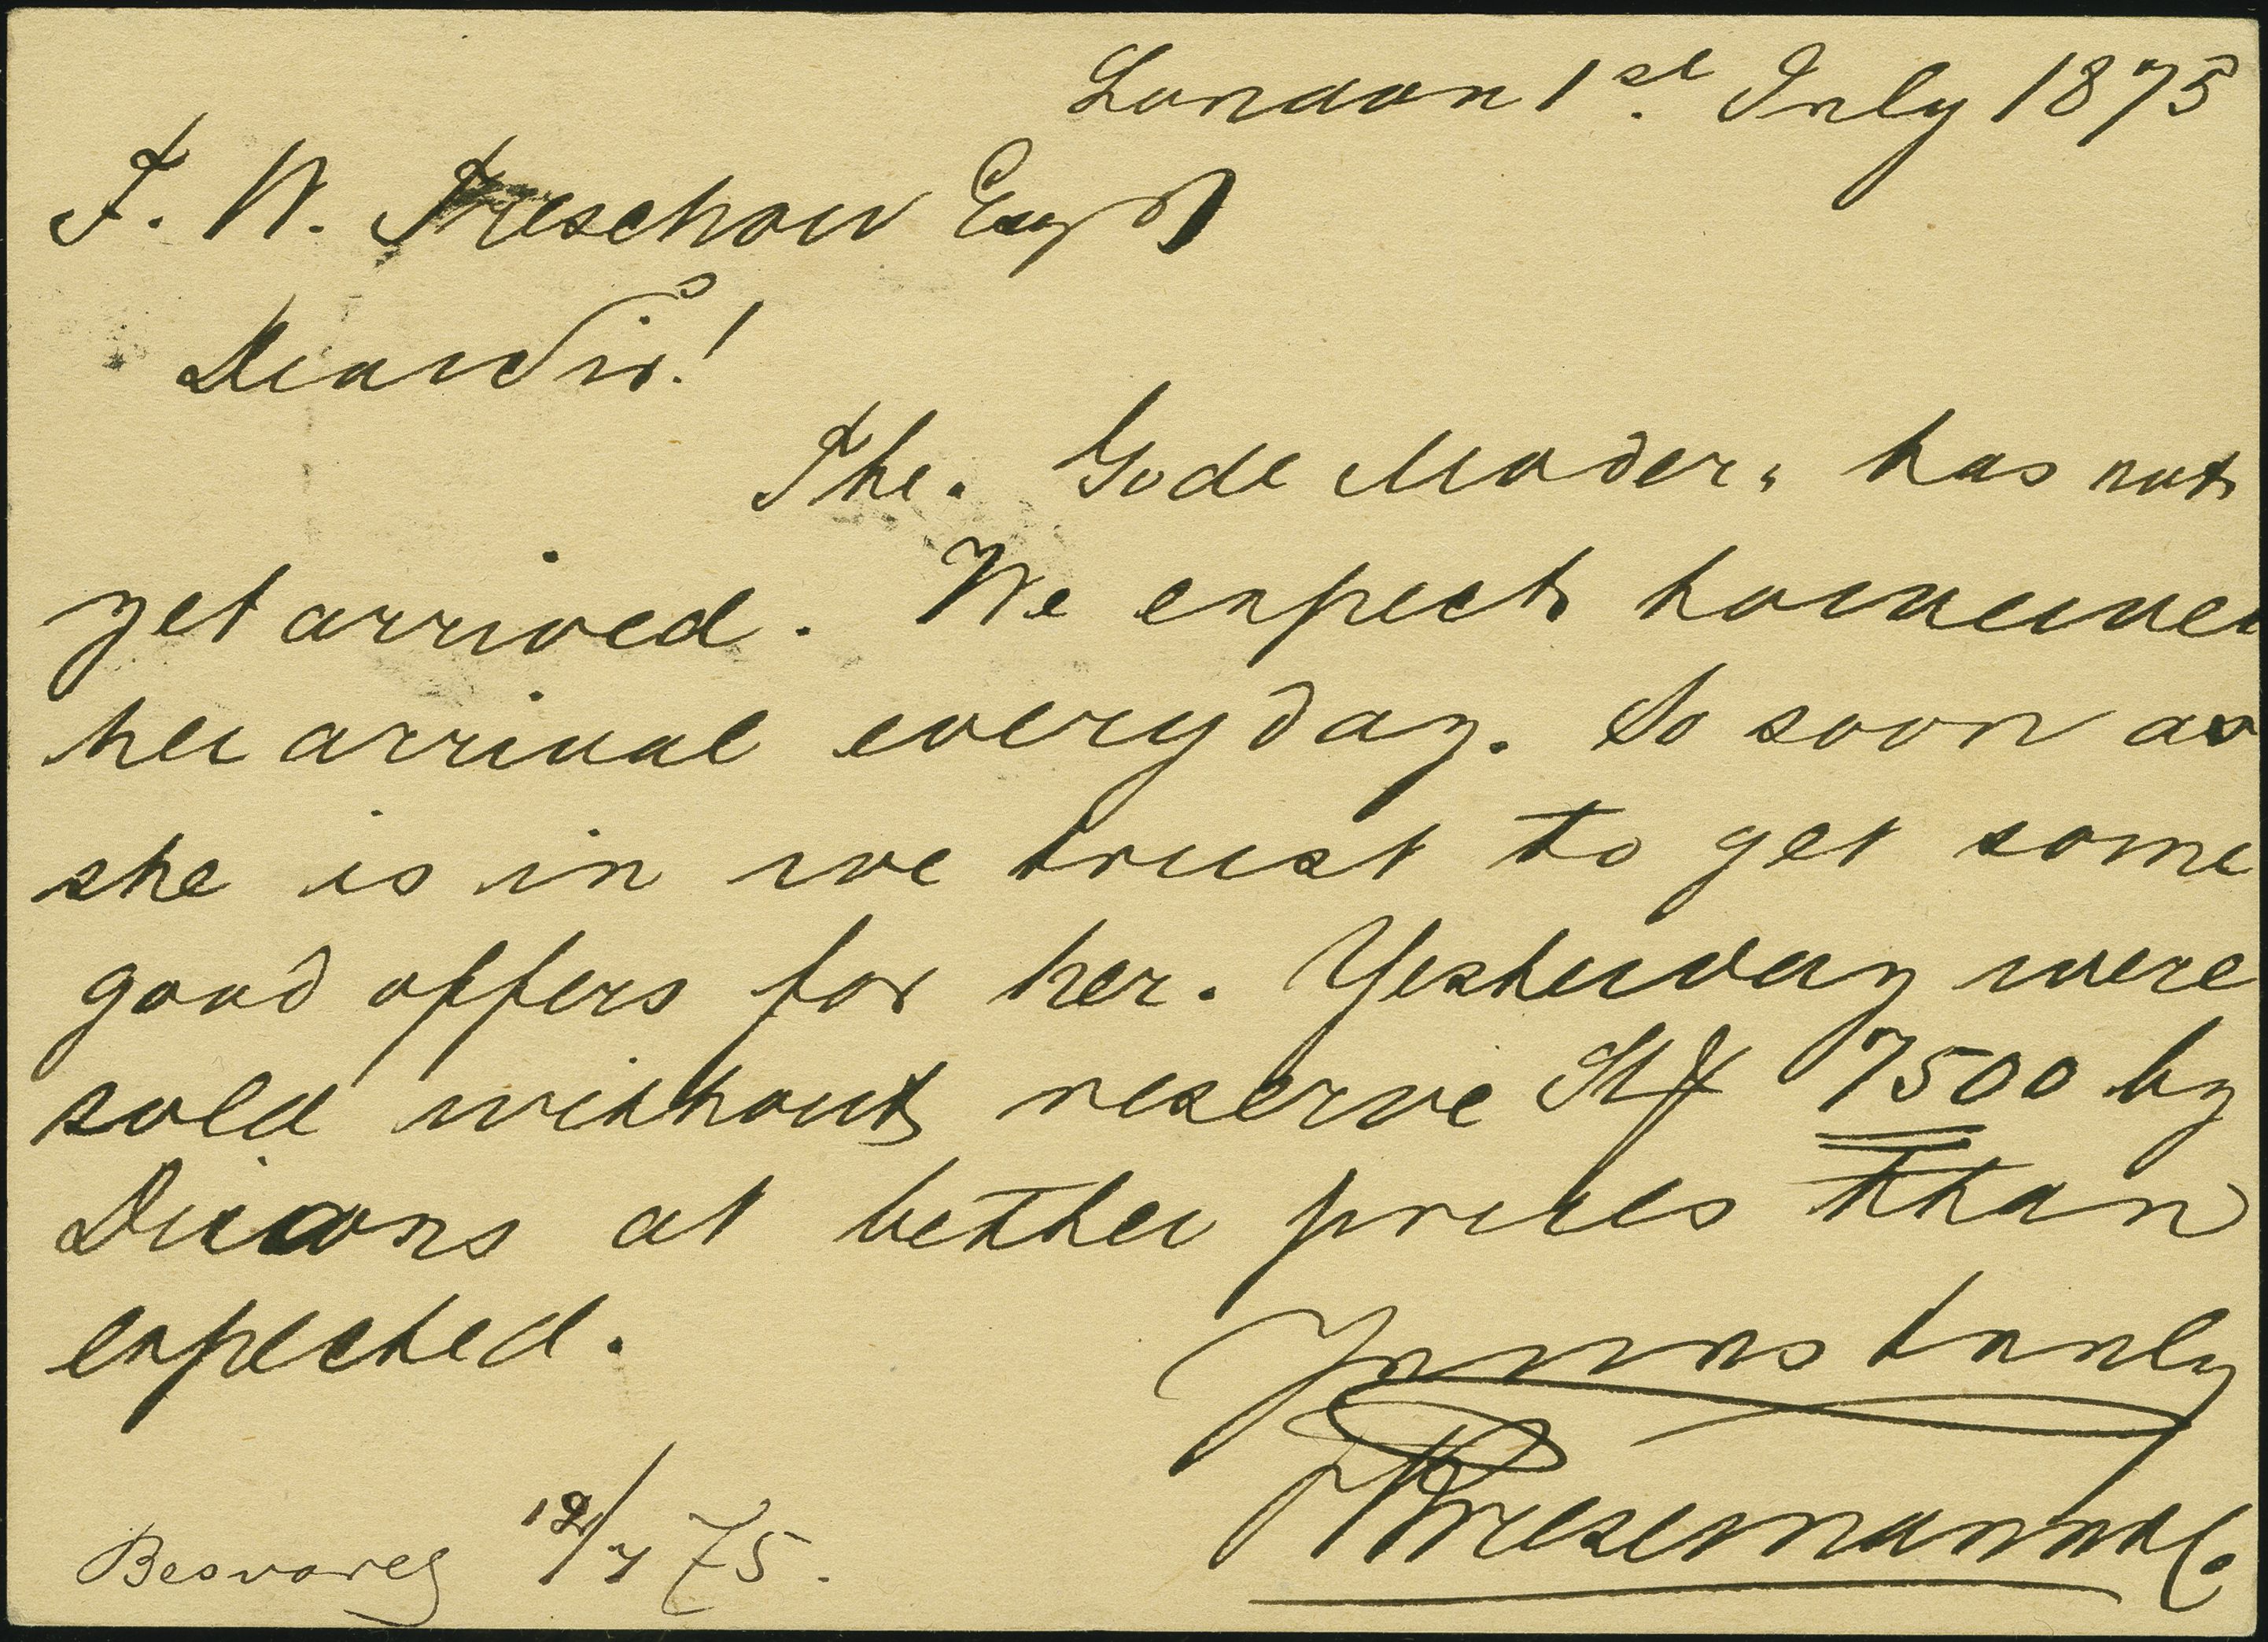 London 1st. July 1875
F. W. Treschow Esqr
Dear Sir!
The. Gode Moder, has not
yet arrived. We expect however
her arrival everyday. So soon as
she is in we trust to get some
good offers for her. Yesterday were
sold without reserve St 7500 by
at better prices than
expected.
Yours truly
Besvaret 12/7 75.